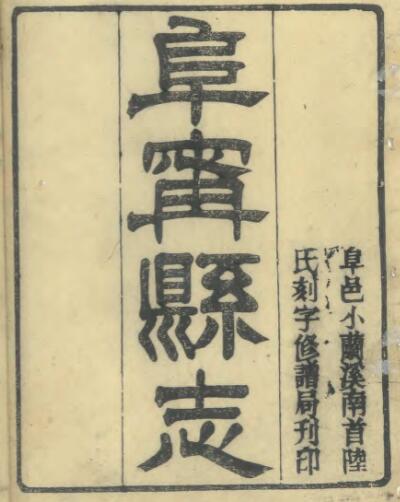 阜邑小蘭溪南首陸
氏刻字修譜局刊印
阜甯縣志